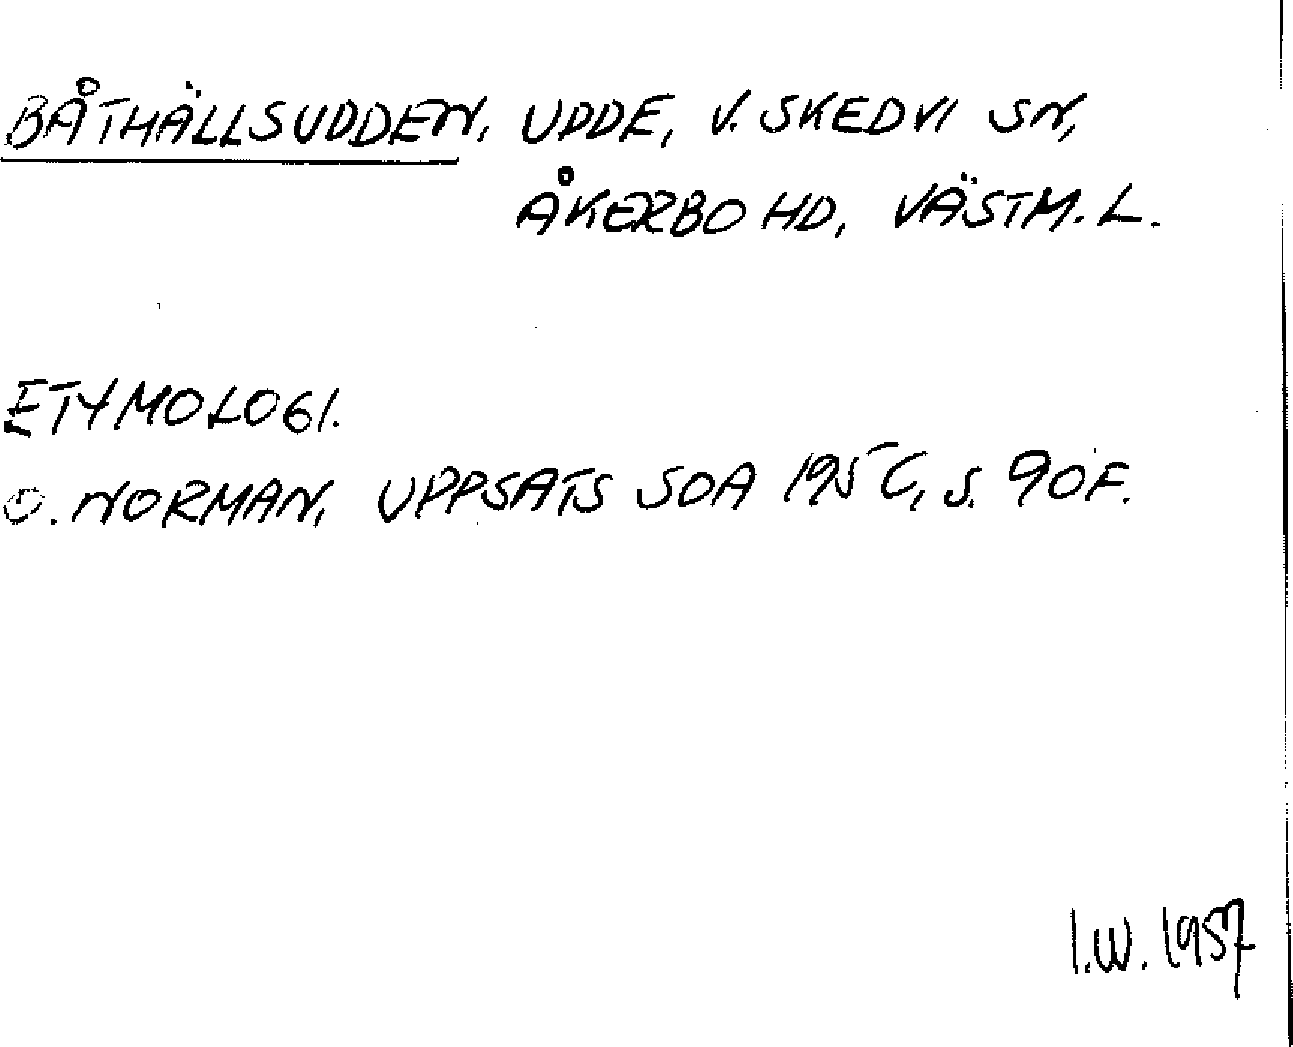 BÅTHÄLLSUDDEN, UDDE, V. SKEDVI SN,
ÅKERBO HD, VÄSTM. L.
ETYMOLOGI.
O. NORMAN, UPPSATS SOA 1950, S. 90F.
I.W. 1957